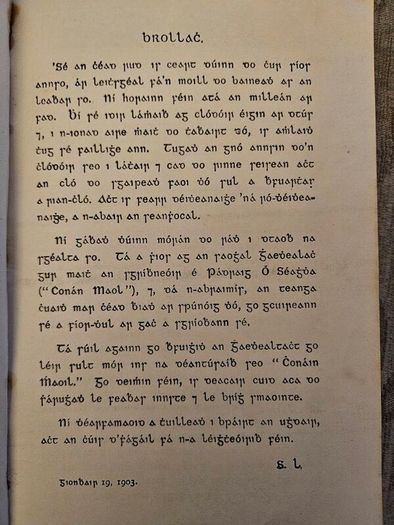 BROLLAĊ.
'Sé an ċéad ruḋ is ceart dúinn do ċur síos
annso, ár leiṫsgéal fá'n moill do baineaḋ ar an
leaḃar so. Ní horainn féin atá an milleán ar
fad. Ḃí sé idir láṁaiḃ ag clódóir éigin ar dtúis
⁊, i n-ionad aire ṁaiṫ do ṫaḃairt dó, is aṁlaiḋ
ṫug sé failliġe ann. Tugaḋ an gnó annsin do'n
ċlódóir seo i láṫair ⁊ cad do rinne seisean aċt
an cló do sgaipeaḋ faoi ḋó sul a ḃfuarṫas
a ṁian-ċló. Aċt is fearr déiḋeanaiġe 'ná ró-ḋéiḋea-
naiġe, a n-abair an seanḟocal.
Ní gáḃaḋ ḋúinn mórán do ráḋ i dtaoḃ na
sgéalta so. Tá a ḟios ag an saoġal Ġaeḋealaċ
gur maiṫ an sgríḃneóir é Pádraig Ó Séaġḋa
("Conán Maol"), ⁊, dá n-abraimís, an teanga
ċuaiḋ mar ċéad ḃiaḋ ar spúnóig ḋó, go gcuireann
sé a fíor-ḋul ar gaċ a sgríoḃann sé.
Tá súil againn go ḃfuiġiḋ an Ġaeḋealtaċt go
léir sult mór ins na déantúsaiḃ seo "Ċonáin
Ṁaoil." Go deiṁin féin, is deacair cuid aca do
ṡáruġaḋ le feaḃas innste ⁊ le bríġ smaointe.
Ní ḋéarfamaoid a ṫuilleaḋ i bpáirt an uġdair,
aċt an ċúis d'ḟágáil fá n-a léiġṫeóiriḃ féin.
S. L.
Gionḃair 19, 1903.